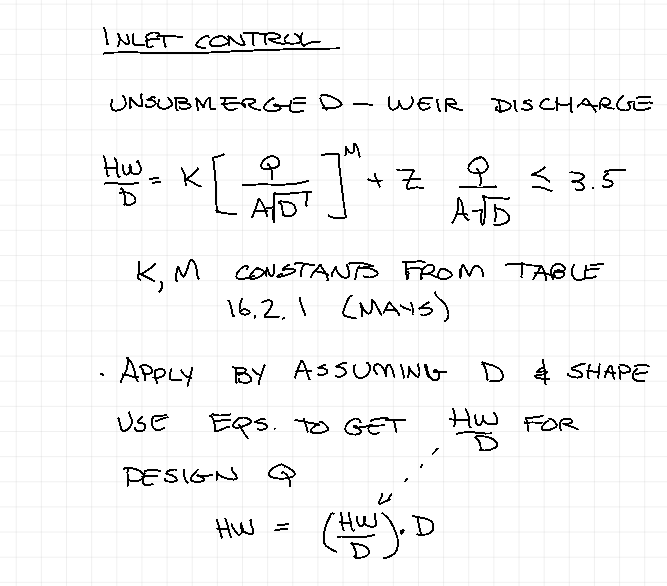 INLET CONTROL
UNSUBMERGED – WEIR DISCHARGE
HW/D = K [Q/(A√D)]^M + Z   Q/(A√D) ≤ 3.5
K, M CONSTANTS FROM TABLE
16.2.1 (MAYS)
· APPLY BY ASSUMING D & SHAPE
USE EQS. TO GET HW/D FOR
DESIGN Q
HW = (HW/D) · D